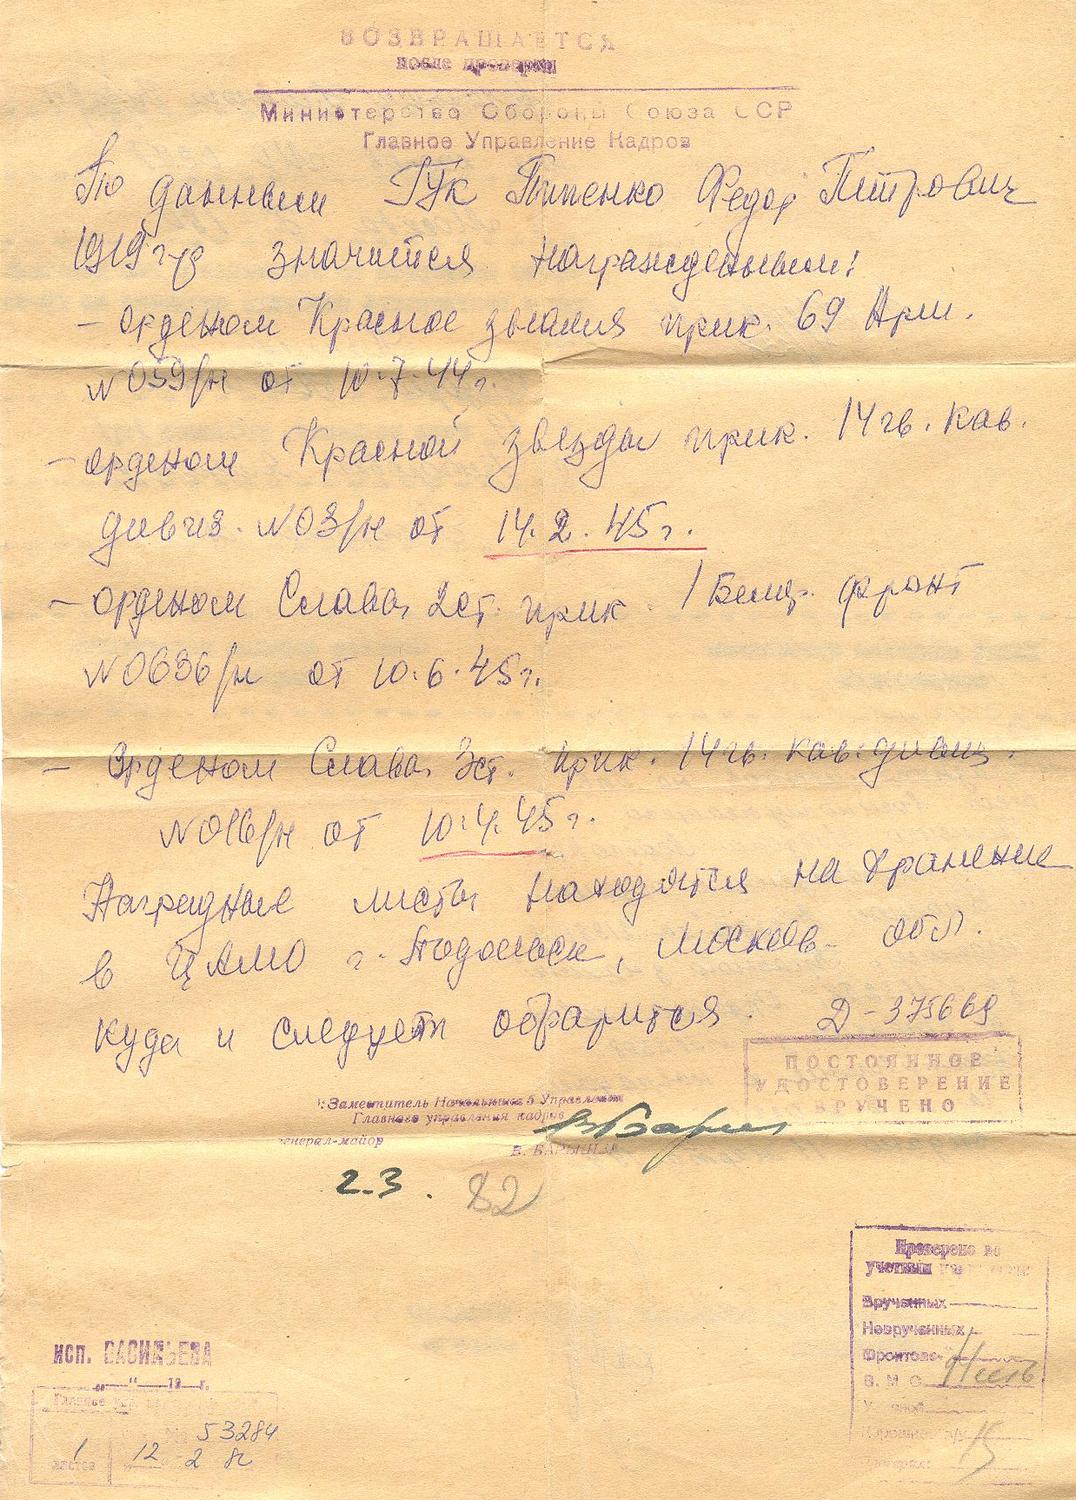 ВОЗВРАЩАЕТСЯ
после проверки
Министерство Обороны Союза ССР
Главное Управление Кадров
По данным ГУК Пипенко Федор Петрович
1919 г.р значится награжденным:
– орденом Красное знамя прик. 69 Арм.
N 059/н от 10.7.44 г.
– орденом Красной звезды прик. 14 гв. кав.
дивиз. N 03/н от 14.2.45 г.
– орденом Слава 2 ст. прик. 1 Белор. фронт
N 0636/н от 10.6.45 г.
– Орденом Слава 3 ст. прик. 14 гв. кав. дивиз.
N 016/н от 10.4.45 г.
Наградные листы находятся на хранение
в ЦАМО г. Подольск, Москов. обл.
куда и следует обратится. Д-375669
ПОСТОЯННОЕ
УДОСТОВЕРЕНИЕ
ВРУЧЕНО
Заместитель Начальника 5 Управления
Главного управления кадров
генерал-майор
2.3. 82
Проверено по
учетным
Врученных
Неврученных
Фронтов.
В. М. С.
15
ИСП. ВАСИЛЬЕВА
„ " 19 г.
Главное
53284
1 12 2 82
листов